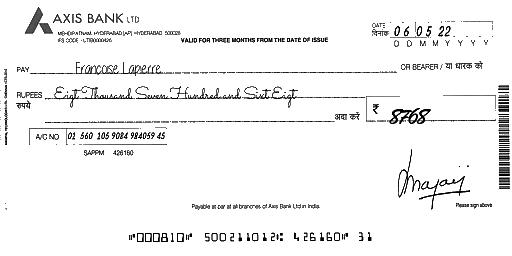 AXIS BANK LTD
MEHDIPATNAM, HYDERABAD (AP) HYDERABAD 500028
IFS CODE - UTIB0000426
VALID FOR THREE MONTHS FROM THE DATE OF ISSUE
DATE
दिनांक 06 05 22
D D M M Y Y Y Y
PAY Francoise Lapierre OR BEARER / या धारक को
RUPEES Eigt Thousand Seven Hundred and Sixt Eigt
रुपये अदा करें ₹ 8768
A/C NO 01 560 105 9084 984059 45
SAPPM 426160
Payable at par at all branches of Axis Bank Ltd in India.
Please sign above
⑈000810⑈ 500211012⑆ 426160⑈ 31